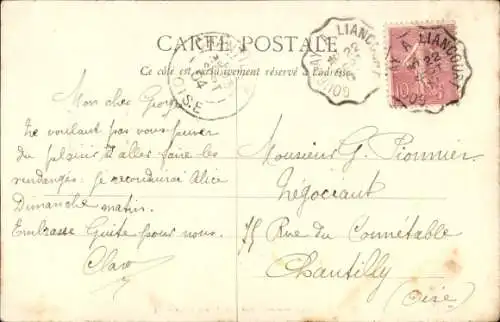 CARTE POSTALE
Ce côté est exclusivement réservé à l'adresse
GOURNAY A LIANCOURT
22
OCT
04
OISE
GOURNAY A LIANCOURT
22
10
Mon cher Georges
Ne voulant pas vous priver
du plaisir d'aller faire les
vendanges je reconduirai Alice
Dimanche matin.
Embrasse Guite pour nous.
Clara
Monsieur G. Pionnier
Négociant
75 Rue du Connétable
Chantilly
(Oise)